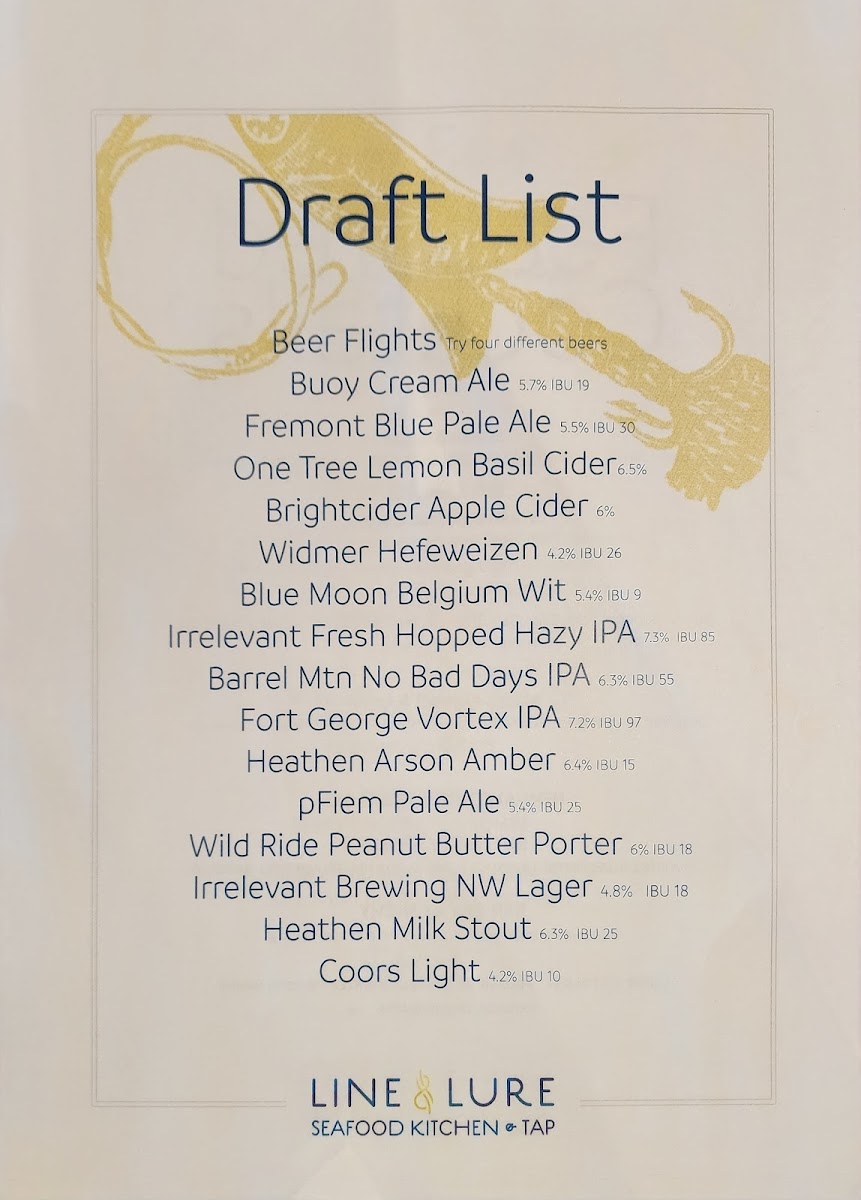 Draft List
Beer Flights Try four different beers
Buoy Cream Ale 5.7% IBU 19
Fremont Blue Pale Ale 5.5% IBU 30
One Tree Lemon Basil Cider 6.5%
Brightcider Apple Cider 6%
Widmer Hefeweizen 4.2% IBU 26
Blue Moon Belgium Wit 5.4% IBU 9
Irrelevant Fresh Hopped Hazy IPA 7.3% IBU 85
Barrel Mtn No Bad Days IPA 6.3% IBU 55
Fort George Vortex IPA 7.2% IBU 97
Heathen Arson Amber 6.4% IBU 15
pFiem Pale Ale 5.4% IBU 25
Wild Ride Peanut Butter Porter 6% IBU 18
Irrelevant Brewing NW Lager 4.8% IBU 18
Heathen Milk Stout 6.3% IBU 25
Coors Light 4.2% IBU 10
LINE & LURE
SEAFOOD KITCHEN & TAP